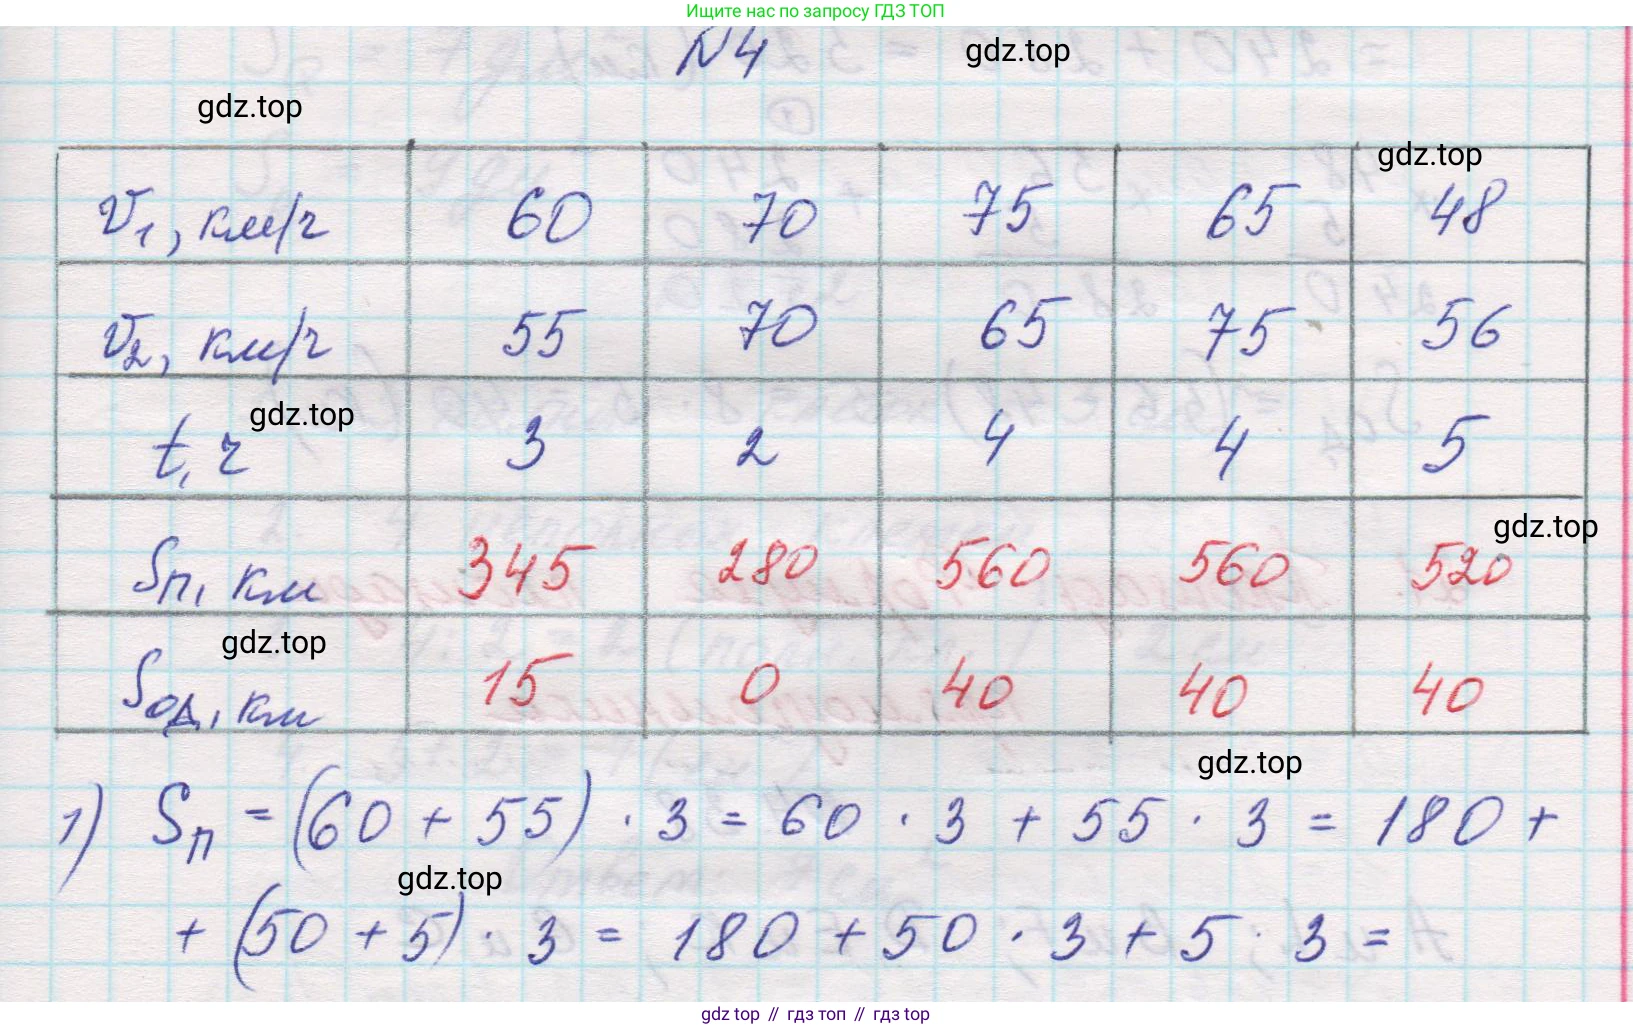 Ищите нас по запросу ГДЗ ТОП
N4 gdz.top
gdz.top
gdz.top
v₁, км/ч 60 70 75 65 48
v₂, км/ч 55 70 65 75 56
gdz.top
t, ч 3 2 4 4 5
gdz.top
Sп, км 345 280 560 560 520
gdz.top
Sод, км 15 0 40 40 40
gdz.top
1) Sп = (60 + 55) · 3 = 60 · 3 + 55 · 3 = 180 +
gdz.top
+ (50 + 5) · 3 = 180 + 50 · 3 + 5 · 3 =
gdz top // гдз топ // gdz top